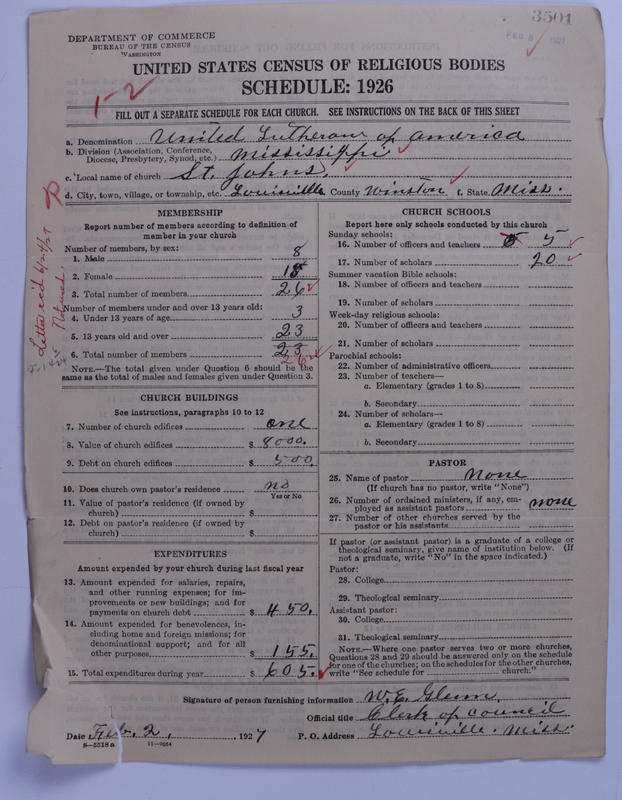 3501
DEPARTMENT OF COMMERCE
BUREAU OF THE CENSUS
WASHINGTON
FEB 8 1927
UNITED STATES CENSUS OF RELIGIOUS BODIES
SCHEDULE: 1926
1-2
FILL OUT A SEPARATE SCHEDULE FOR EACH CHURCH. SEE INSTRUCTIONS ON THE BACK OF THIS SHEET
a. Denomination United Lutheran of America
b. Division (Association, Conference,
Diocese, Presbytery, Synod, etc.) Mississippi
c. Local name of church St. Johns.
d. City, town, village, or township, etc. Louisville County Winston f. State Miss.
MEMBERSHIP
Report number of members according to definition of
member in your church
Number of members, by sex:
1. Male 8
2. Female 18
3. Total number of members 26
Number of members under and over 13 years old:
4. Under 13 years of age 3
5. 13 years old and over 23
6. Total number of members 23
26
NOTE.—The total given under Question 6 should be the
same as the total of males and females given under Question 3.
Letter rec'd 6/24/27
CHURCH BUILDINGS
See instructions, paragraphs 10 to 12
7. Number of church edifices one
8. Value of church edifices $ 8000.
9. Debt on church edifices $ 500.
10. Does church own pastor's residence no
Yes or No
11. Value of pastor's residence (if owned by
church) $
12. Debt on pastor's residence (if owned by
church) $
EXPENDITURES
Amount expended by your church during last fiscal year
13. Amount expended for salaries, repairs,
and other running expenses; for im-
provements or new buildings; and for
payments on church debt $ 450.
14. Amount expended for benevolences, in-
cluding home and foreign missions; for
denominational support; and for all
other purposes $ 155.
15. Total expenditures during year $ 605.
CHURCH SCHOOLS
Report here only schools conducted by this church
Sunday schools:
16. Number of officers and teachers 5
17. Number of scholars 20
Summer vacation Bible schools:
18. Number of officers and teachers
19. Number of scholars
Week-day religious schools:
20. Number of officers and teachers
21. Number of scholars
Parochial schools:
22. Number of administrative officers
23. Number of teachers—
a. Elementary (grades 1 to 8)
b. Secondary
24. Number of scholars—
a. Elementary (grades 1 to 8)
b. Secondary
PASTOR
25. Name of pastor None
(If church has no pastor, write "None")
26. Number of ordained ministers, if any, em-
ployed as assistant pastors none
27. Number of other churches served by the
pastor or his assistants
If pastor (or assistant pastor) is a graduate of a college or
theological seminary, give name of institution below. (If
not a graduate, write "No" in the space indicated.)
Pastor:
28. College
29. Theological seminary
Assistant pastor:
30. College
31. Theological seminary
NOTE.—Where one pastor serves two or more churches,
Questions 28 and 29 should be answered only on the schedule
for one of the churches; on the schedules for the other churches,
write "See schedule for church."
Signature of person furnishing information W. E. Glenn
Official title Clerk of council
Date Feb. 2, 1927 P. O. Address Louisville. Miss.
8-5518 a 11-9664